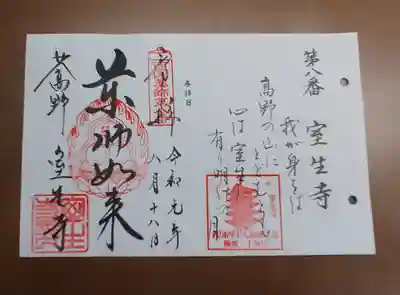 第八番 室生寺
我が身をば
高野の山に
とどむとも
心は室生に
有り明けの月
参拝日
奉拝
令和元年
八月十八日
薬師如来
女人高野
室生寺